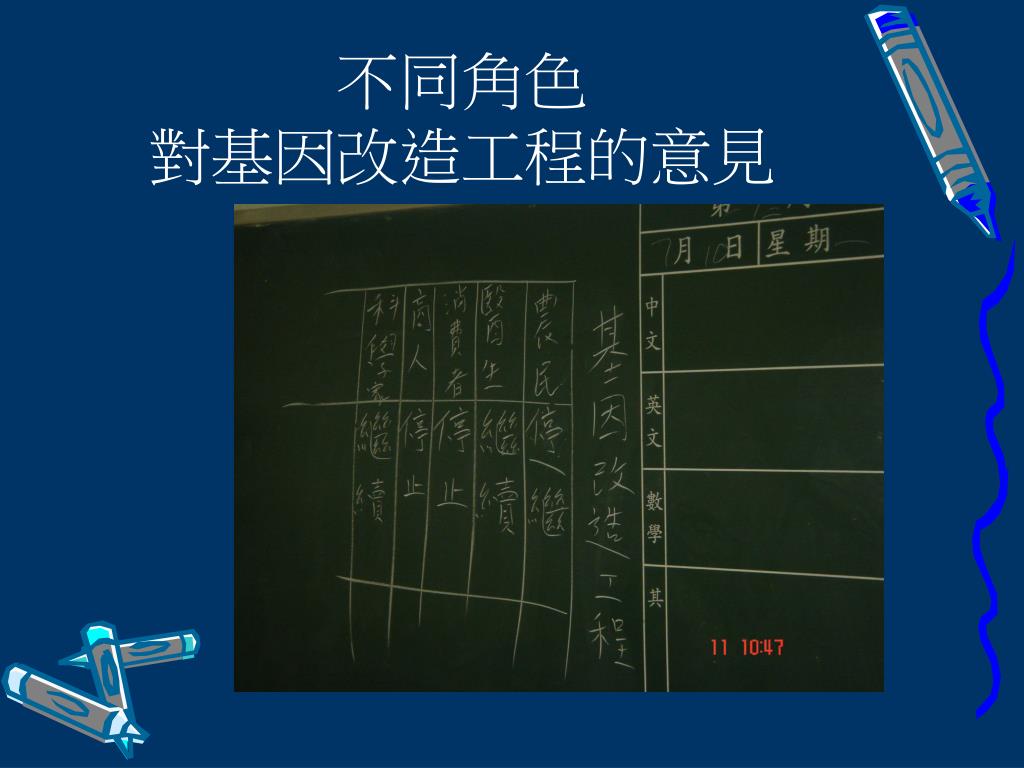 不同角色
對基因改造工程的意見
7月10日
星期一
中文
英文
數學
其
基因改造工程
農民
停、繼
醫生
繼續
消費者
停止
商人
停止
科學家
繼續
11 10:47